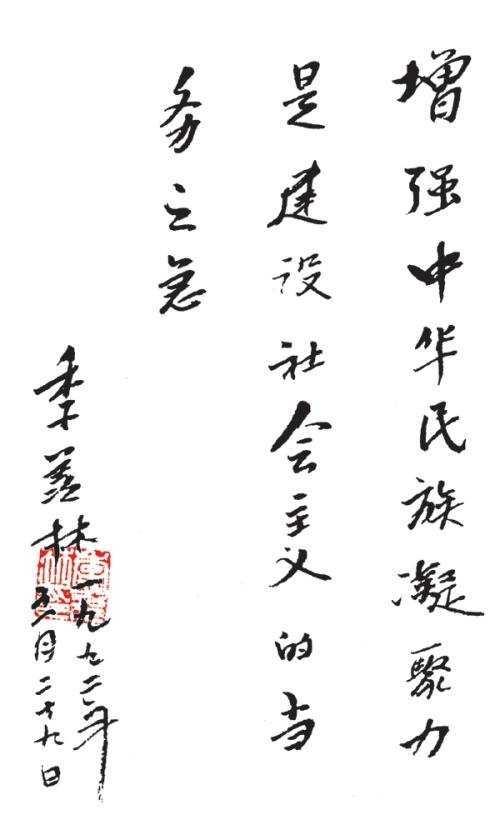 增强中华民族凝聚力
是建设社会主义的当
务之急
季羡林
一九九二年
月二十九日